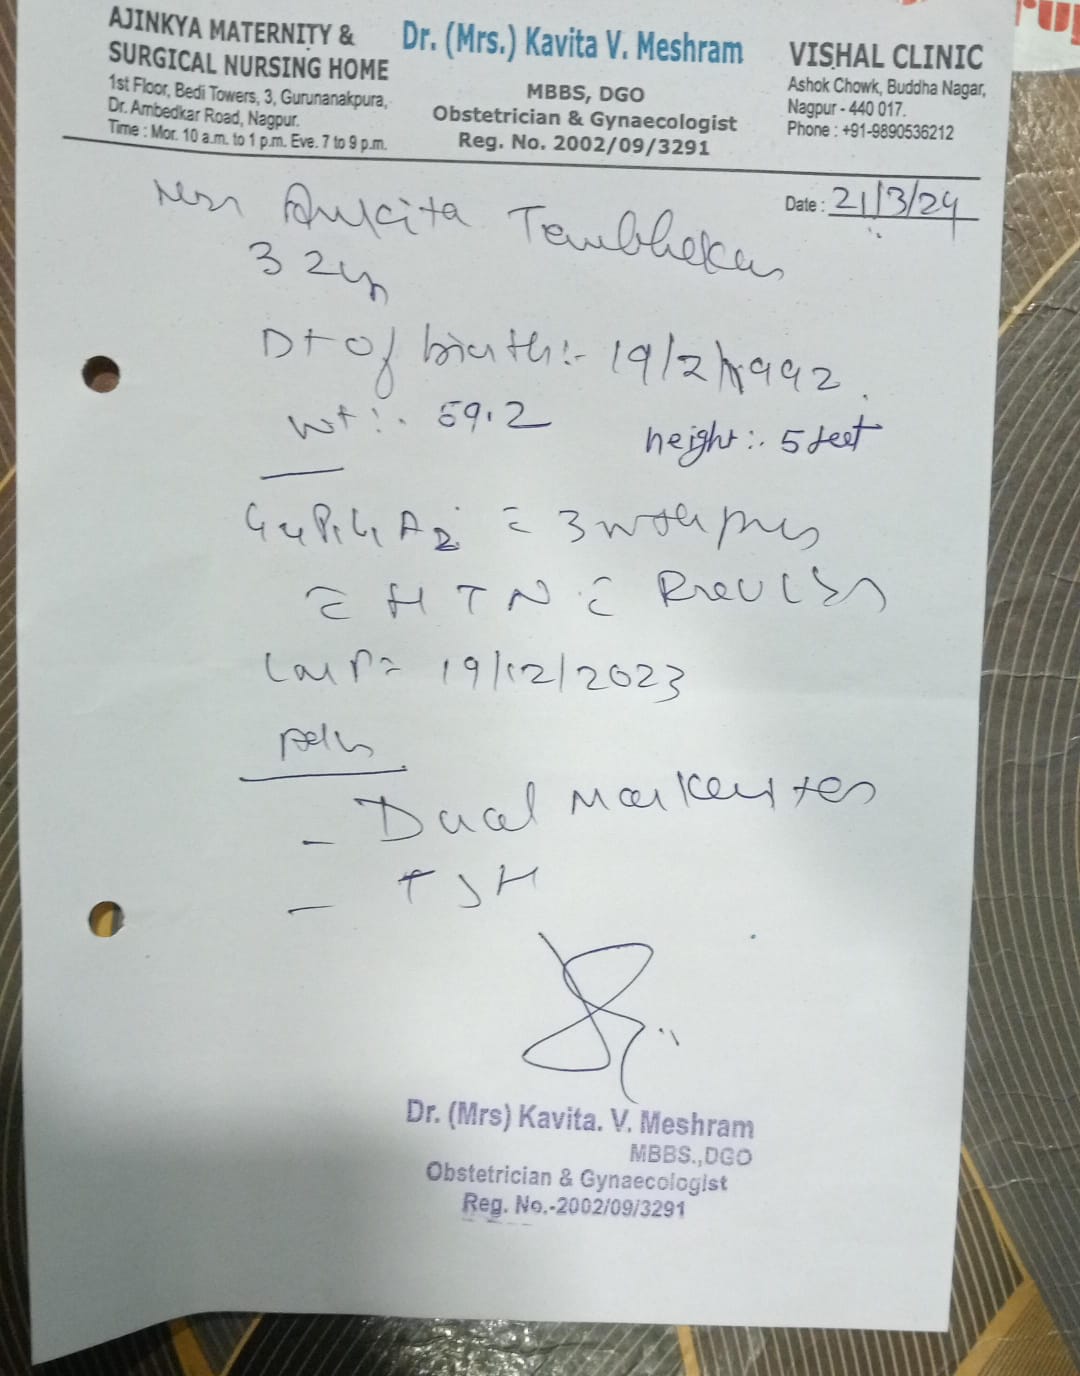 AJINKYA MATERNITY &
SURGICAL NURSING HOME
1st Floor, Bedi Towers, 3, Gurunanakpura,
Dr. Ambedkar Road, Nagpur.
Time : Mor. 10 a.m. to 1 p.m. Eve. 7 to 9 p.m.
Dr. (Mrs.) Kavita V. Meshram
MBBS, DGO
Obstetrician & Gynaecologist
Reg. No. 2002/09/3291
VISHAL CLINIC
Ashok Chowk, Buddha Nagar,
Nagpur - 440 017.
Phone : +91-9890536212
Date : 21/3/24
Ankita Tembhekar
32yr
Dt of birth :- 19/2/1992
wt :- 59.2 height :- 5 feet
G4P1L1A2 = 3 mth
= HTN c Prev LSCS
LMP = 19/12/2023
Adv
- Dual Marker test
- TSH
Dr. (Mrs) Kavita. V. Meshram
MBBS.,DGO
Obstetrician & Gynaecologist
Reg. No.-2002/09/3291